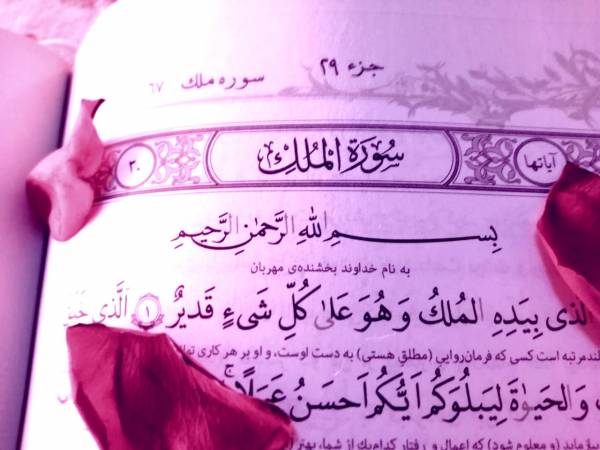 جزء ۲۹
سوره ملک ۶۷
آیاتها سُورَةُ الْمُلْكِ ۳۰
بِسْمِ اللهِ الرَّحْمٰنِ الرَّحيمِ
به نام خداوند بخشنده‌ی مهربان
الَّذى بِيَدِهِ الْمُلْكُ وَ هُوَ عَلىٰ كُلِّ شَىْءٍ قَديرٌ ۱ اَلَّذى
است کسی که فرمان‌روایی (مطلق هستی) به دست اوست، و او بر هر کاری
وَ الْحَيٰوةَ لِيَبْلُوَكُمْ اَيُّكُمْ اَحْسَنُ عَمَلًا
(و معلوم شود) که اعمال و رفتار کدام‌یک از شما، بهتر